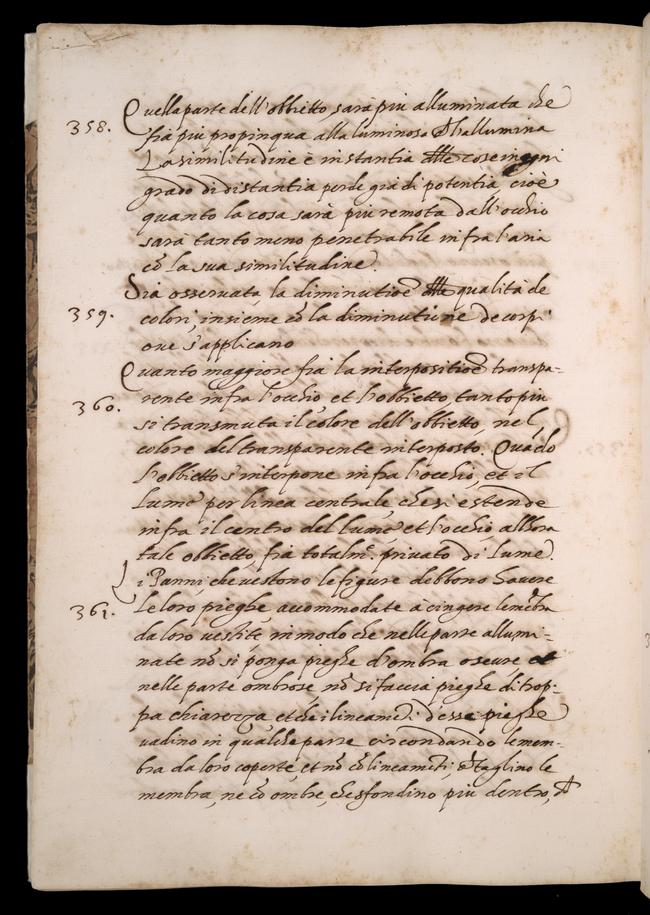 Quella parte dell'obbietto sarà più alluminata che
358. fia più propinqua alla luminoso ch l'allumina
La similitudine è instantia delle cose in ogni
grado di distantia perde gradi di potentia, cioè
quanto la cosa sarà più remota dall'occhio
sarà tanto meno penetrabile infra l'aria
cō la sua similitudine.
Sia osservata la diminutioē delle qualità de
359. colori, insieme cō la diminutione de corpi
ove s'applicano
Quanto maggiore fia la interpositioē transpa-
360. rente infra l'occhio et l'obbietto, tanto più
si transmuta il colore dell'obbietto, nel,
colore del transparente interposto. Quādo
l'obbietto s'interpone infra l'occhio, et il
lume per linea centrale che si estende
infra il centro del lume et l'occhio allhora
tale obbietto, fia totalm̃. privato di lume.
i Panni, che vestono le figure debbono havere
361. le loro pieghe accommodate à cingere le mēbra
da loro vestite, in modo che nelle parte allumi-
nate nō si ponga pieghe d'ombra oscure et
nelle parte ombrose nō si faccia pieghe di trop-
pa chiarezza et che i lineamēti d'esse pieghe
vadino in qualche parte circondando le mem-
bra da loro coperte, et nō cō lineamēti, ch taglino le
membra, ne cō ombre, che sfondino più dentro, ch